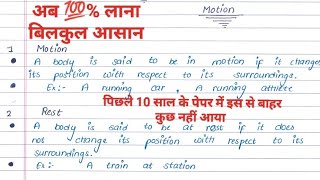 अब 💯% लाना
बिलकुल आसान
Motion
1 Motion
A body is said to be in motion if it changes
its position with respect to its surroundings.
Ex:- A running car, A running athlet
पिछले 10 साल के पेपर में इस से बाहर
कुछ नहीं आया
2 Rest
A body is said to be at rest if it does
not change its position with respect to its
surroundings.
Ex:- A train at station